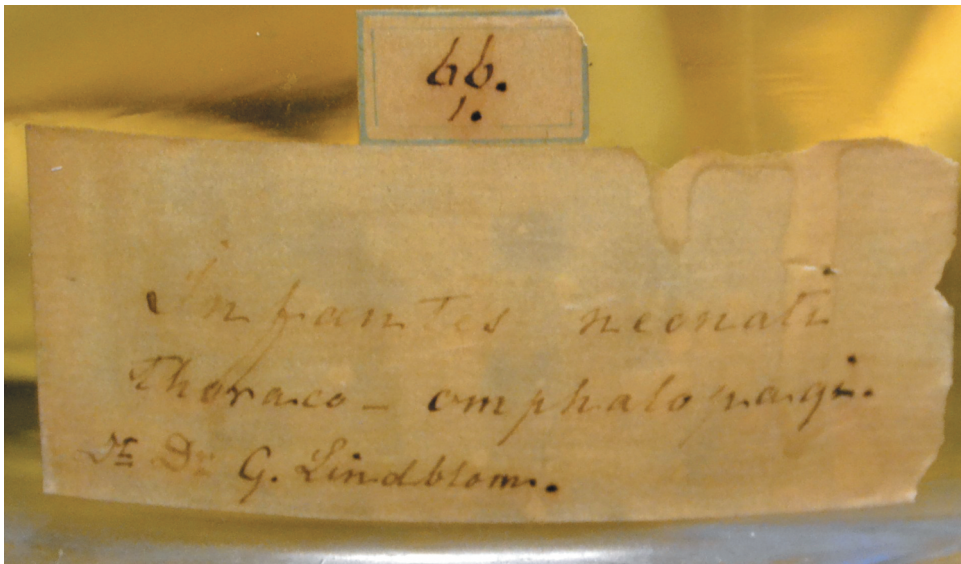 66.
1.
Infantes neonati
thoraco - omphalopagi.
Dr G. Lindblom.